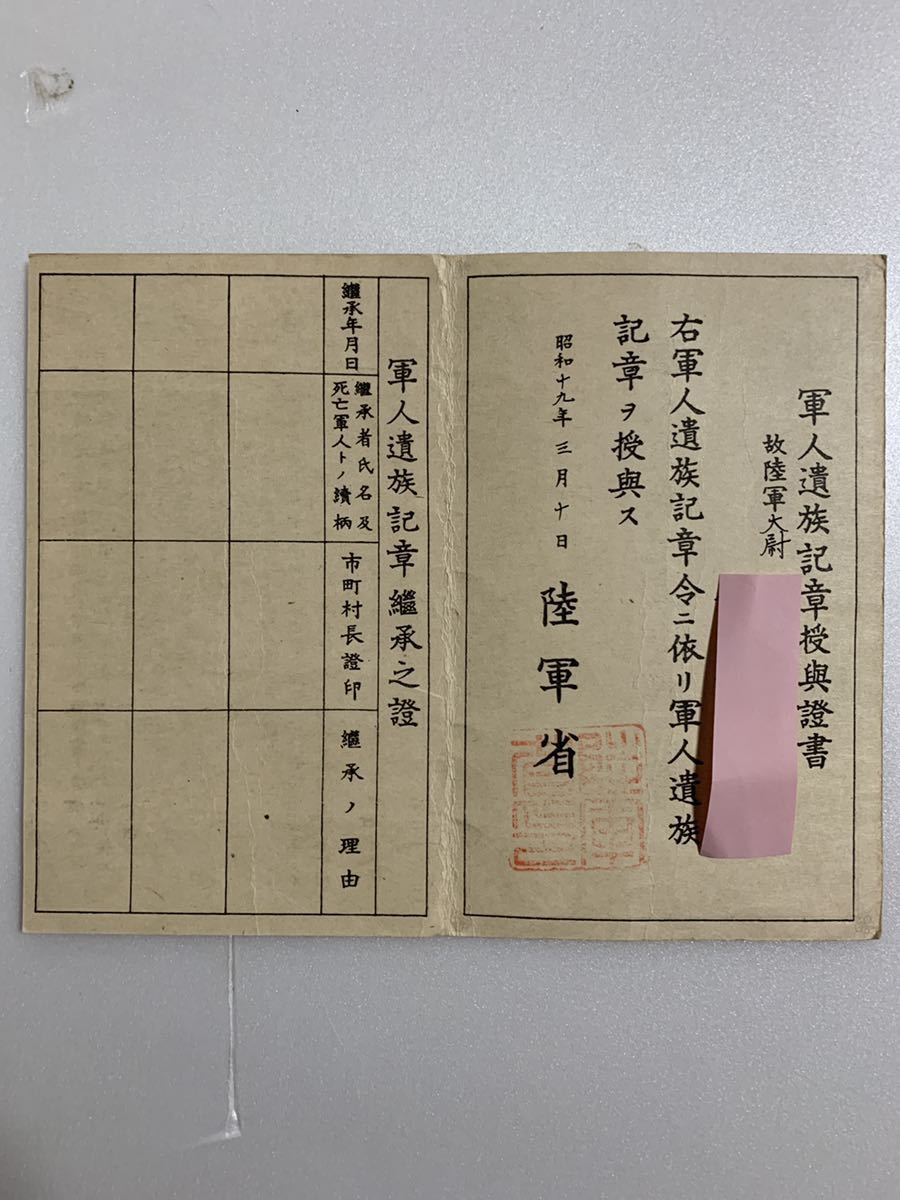 軍人遺族記章授與證書
故陸軍大尉
右軍人遺族記章令ニ依リ軍人遺族
記章ヲ授與ス
昭和十九年三月十日
陸軍省
軍人遺族記章繼承之證
繼承年月日
繼承者氏名及
死亡軍人トノ續柄
市町村長證印
繼承ノ理由